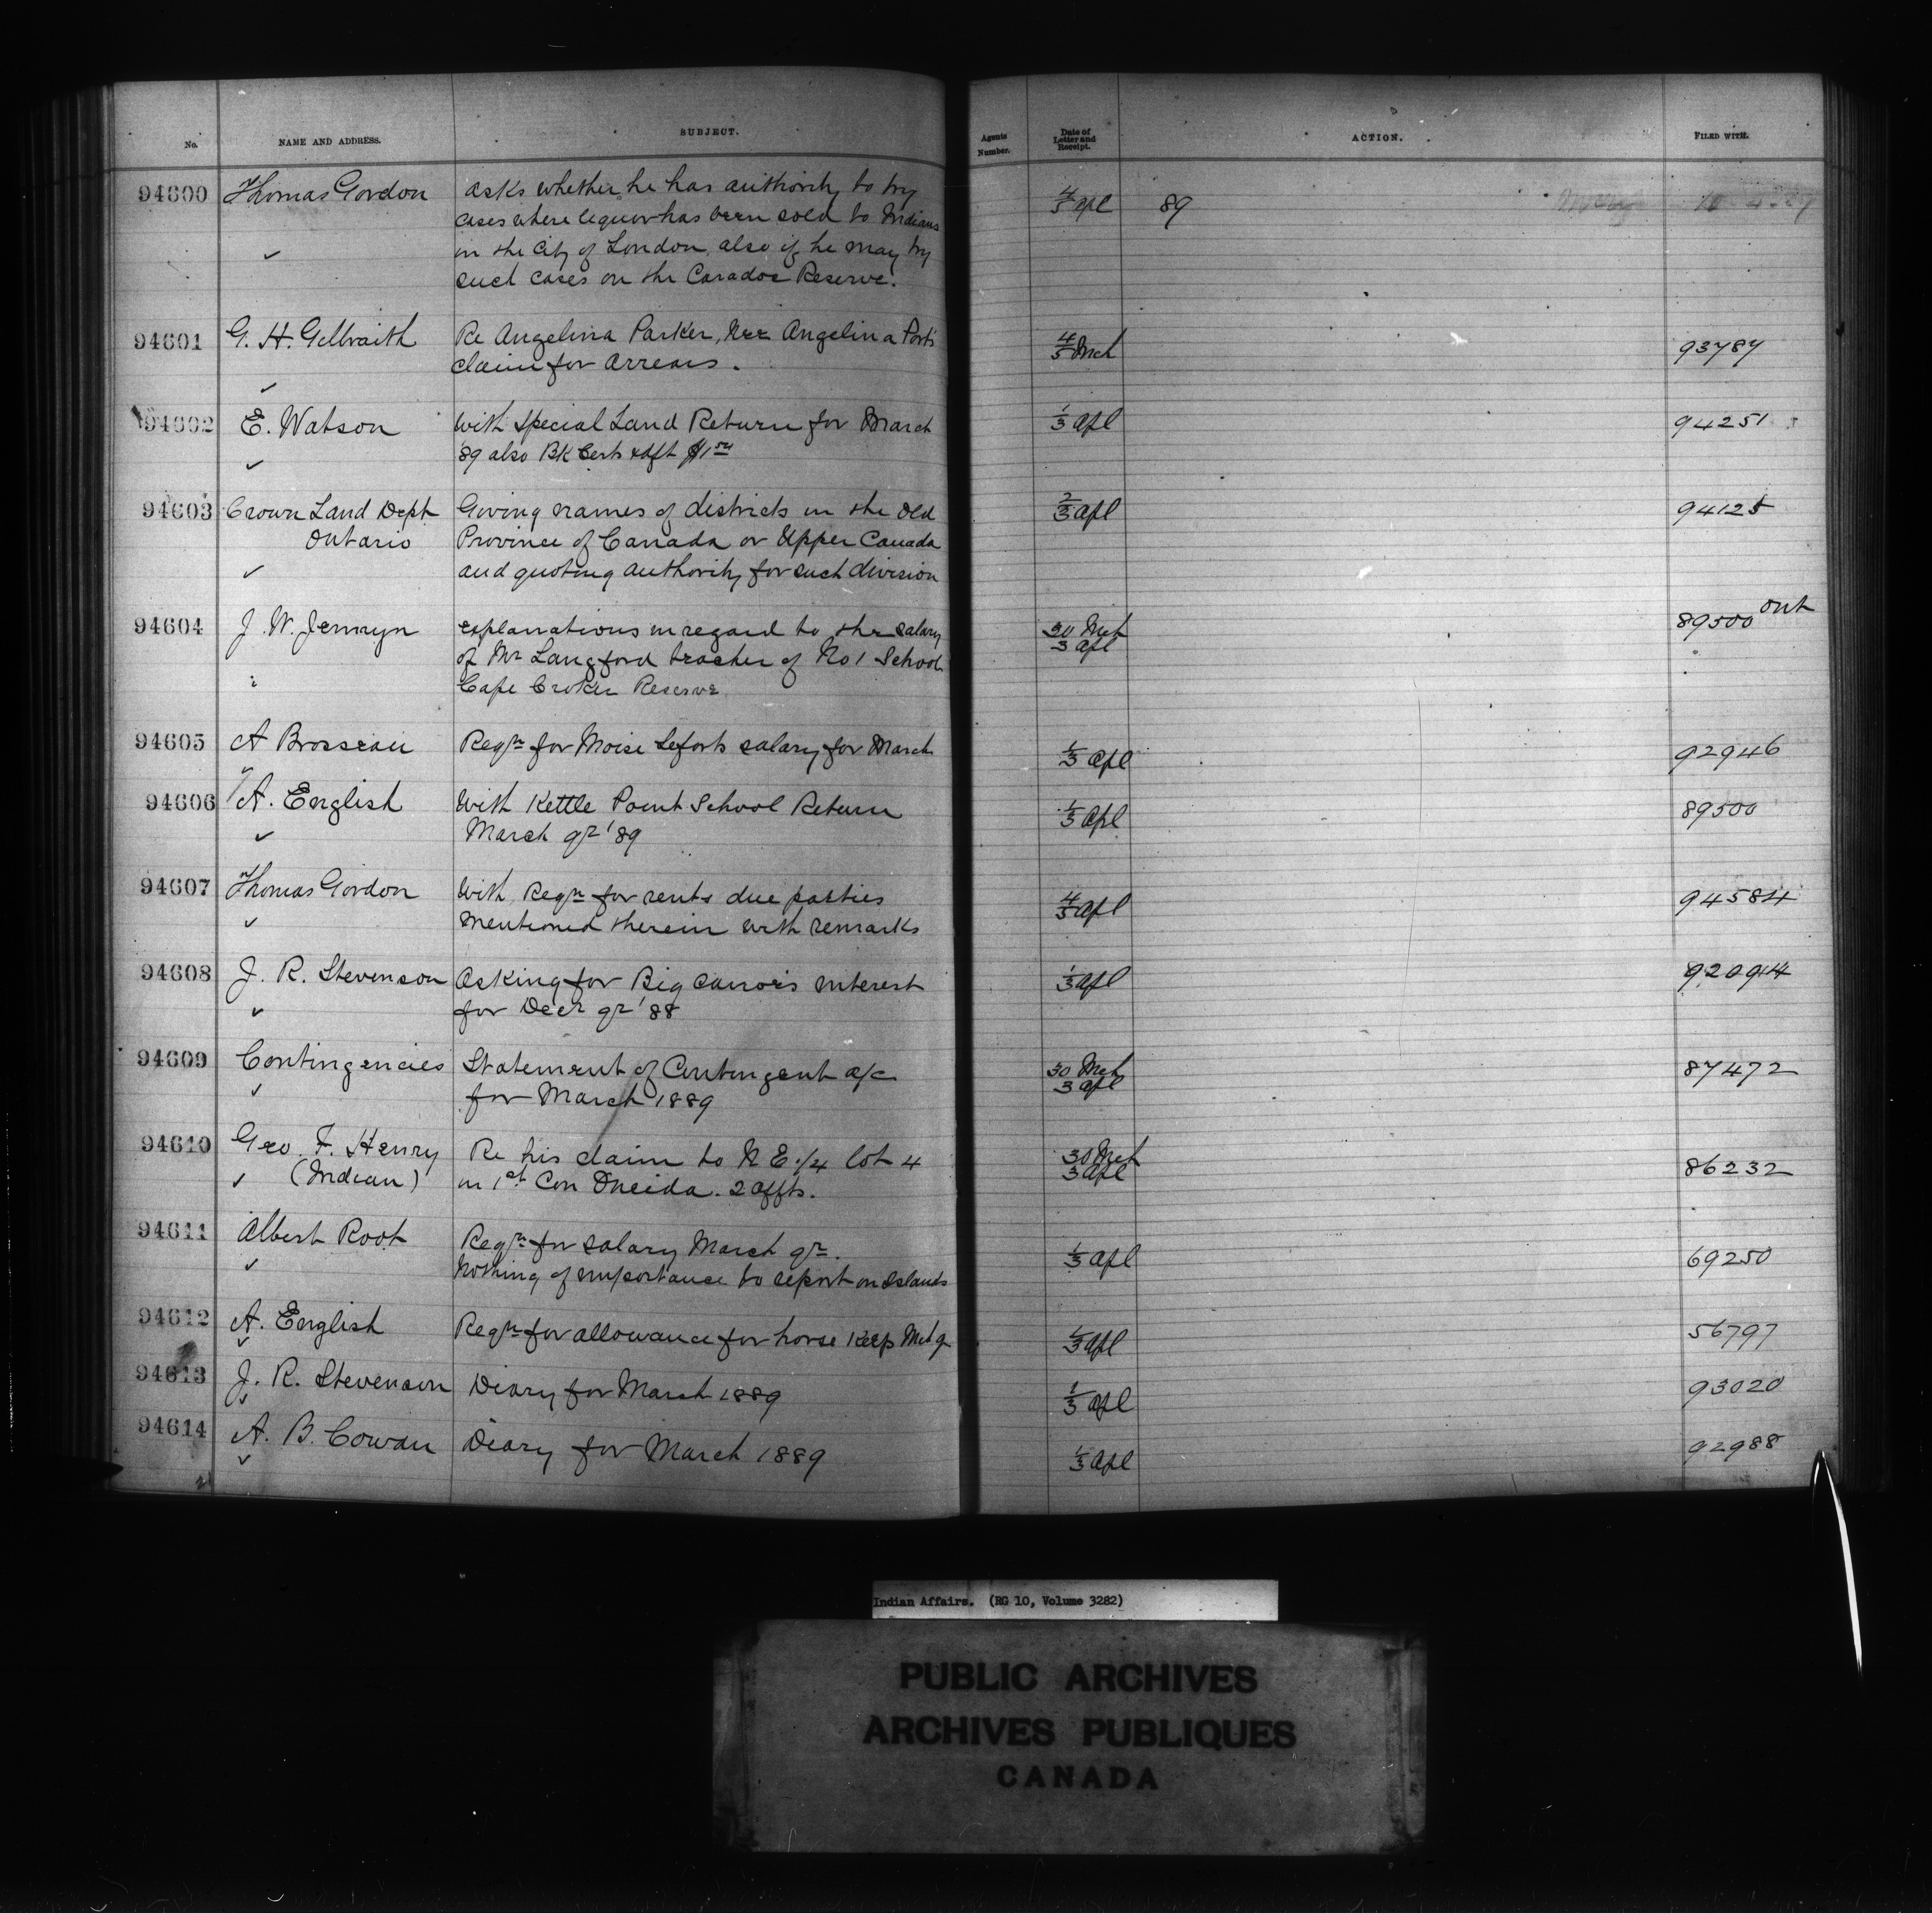 No.
NAME AND ADDRESS.
SUBJECT.
Agents Number.
Date of Letter and Receipt.
ACTION.
FILED WITH.
94600 Thomas Gordon asks whether he has authority to try 4/5 apl 89
cases where liquor has been sold to Indians
in the City of London also if he may try
such cases on the Caradoc Reserve.
94601 G. H. Gilbraith Re Angelina Parker, Nee Angelina Ports 4/5 Mch 93787
claim for arrears.
94602 E. Watson With Special Land Return for March 1/3 apl 94251
'89 also BK Certs &
94603 Crown Land Dept Giving names of districts in the old 2/3 apl 94125
Ontario Province of Canada or Upper Canada
and quoting authority for such division
94604 J. W. Jermyn explanations in regard to the salary 30 Mch 3 apl 89500 out
of Mr Langford teacher of No 1 School
Cape Croker Reserve.
94605 A Brosseau Reqn for Moise Leforts salary for March 1/3 apl 92946
94606 A. English With Kettle Point School Return 1/3 apl 89500
March qr '89
94607 Thomas Gordon With Reqn for rents due parties 4/5 apl 94584
mentioned therein with remarks
94608 J. R. Stevenson Asking for Big Canoe's interest 1/3 apl
for Decr qr '88
94609 Contingencies Statement of Contingent a/c 30 Mch 3 apl 87472
for March 1889
94610 Geo. F. Henry Re his claim to N E 1/4 lot 4 30 Mch 3 apl 86232
(Indian) in 1st Con Oneida. 2 affts.
94611 Albert Root Reqn for salary March qr. 1/3 apl 69250
Nothing of importance to report on Islands
94612 A. English Reqn for allowance for horse keep Mch q 1/3 apl 56797
94613 J. R. Stevenson Diary for March 1889 1/3 apl 93020
94614 A. B. Cowan Diary for March 1889 1/3 apl 92988
Indian Affairs. (RG 10, Volume 3282)
PUBLIC ARCHIVES
ARCHIVES PUBLIQUES
CANADA